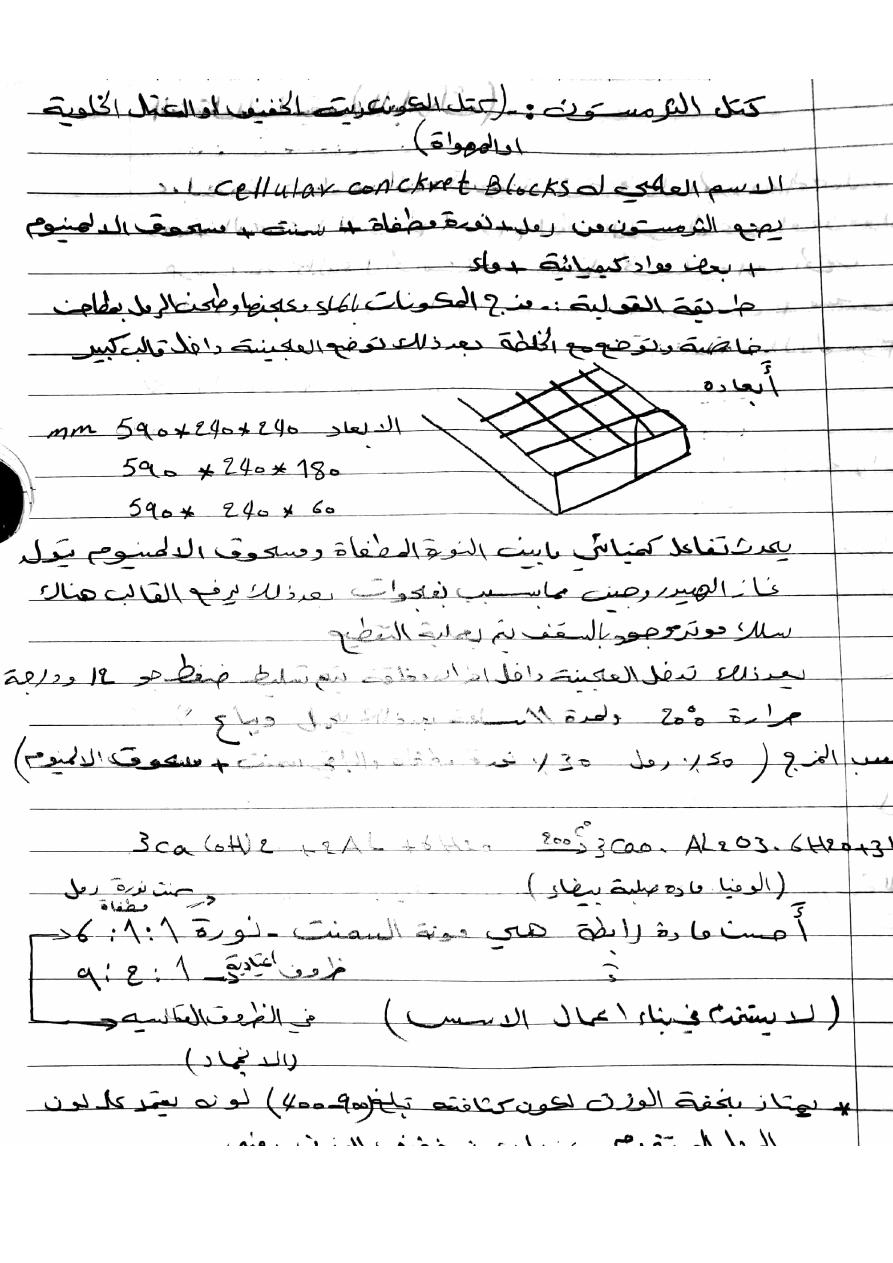 كتل الثرمستون :- (كتل الكونكريت الخفيف او الكتل الخلوية
او المهواة)
الاسم العلمي له Cellular conckret Blocks
يصنع الثرمستون من رمل + نورة مطفاة + سمنت + مسحوق الالمنيوم
+ بعض مواد كيميائية + ماء
طريقة القولبة :- مزج المكونات بالماء وعجنها وطحن الرمل بمطاحن
خاصة وتوضع مع الخلطة بعد ذلك توضع العجينة داخل قالب كبير
أبعاده
الابعاد 590*240*240 mm
590 * 240 * 180
590 * 240 * 60
يحدث تفاعل كيميائي مابين النورة المطفاة ومسحوق الالمنيوم يتولد
غاز الهيدروجين مما يسبب فجوات بعد ذلك يرفع القالب هناك
سلك موتر موجود بالسقف يتم بعملية التقطيع
بعد ذلك تدخل العجينة داخل يتم تسليط ضغط هو 12 ودرجة
حرارة 200 ولمدة 18 ساعة بعد ذلك ويباع
نسب المزج ( 50٪ رمل 30٪ نورة مطفاة والباقي سمنت + مسحوق الالمنيوم)
3ca(oH)2 + 2AL + 6H2o 200C° 3Cao. AL2O3. 6H2o+3H
(الوفيا ماده صلبة بيضاء)
سمنت نورة رمل
مطفاة
أحسن مادة رابطة هي مونة السمنت - نورة 1:1:6
ظروف اعتيادية 1 : 2 : 9
(لا يستخدم في بناء اعمال الاسس) في الظروف القاسية
(الانجماد)
* يمتاز بخفة الوزن لكون كثافته تبلغ (400-900) لونه يعتمد على لون